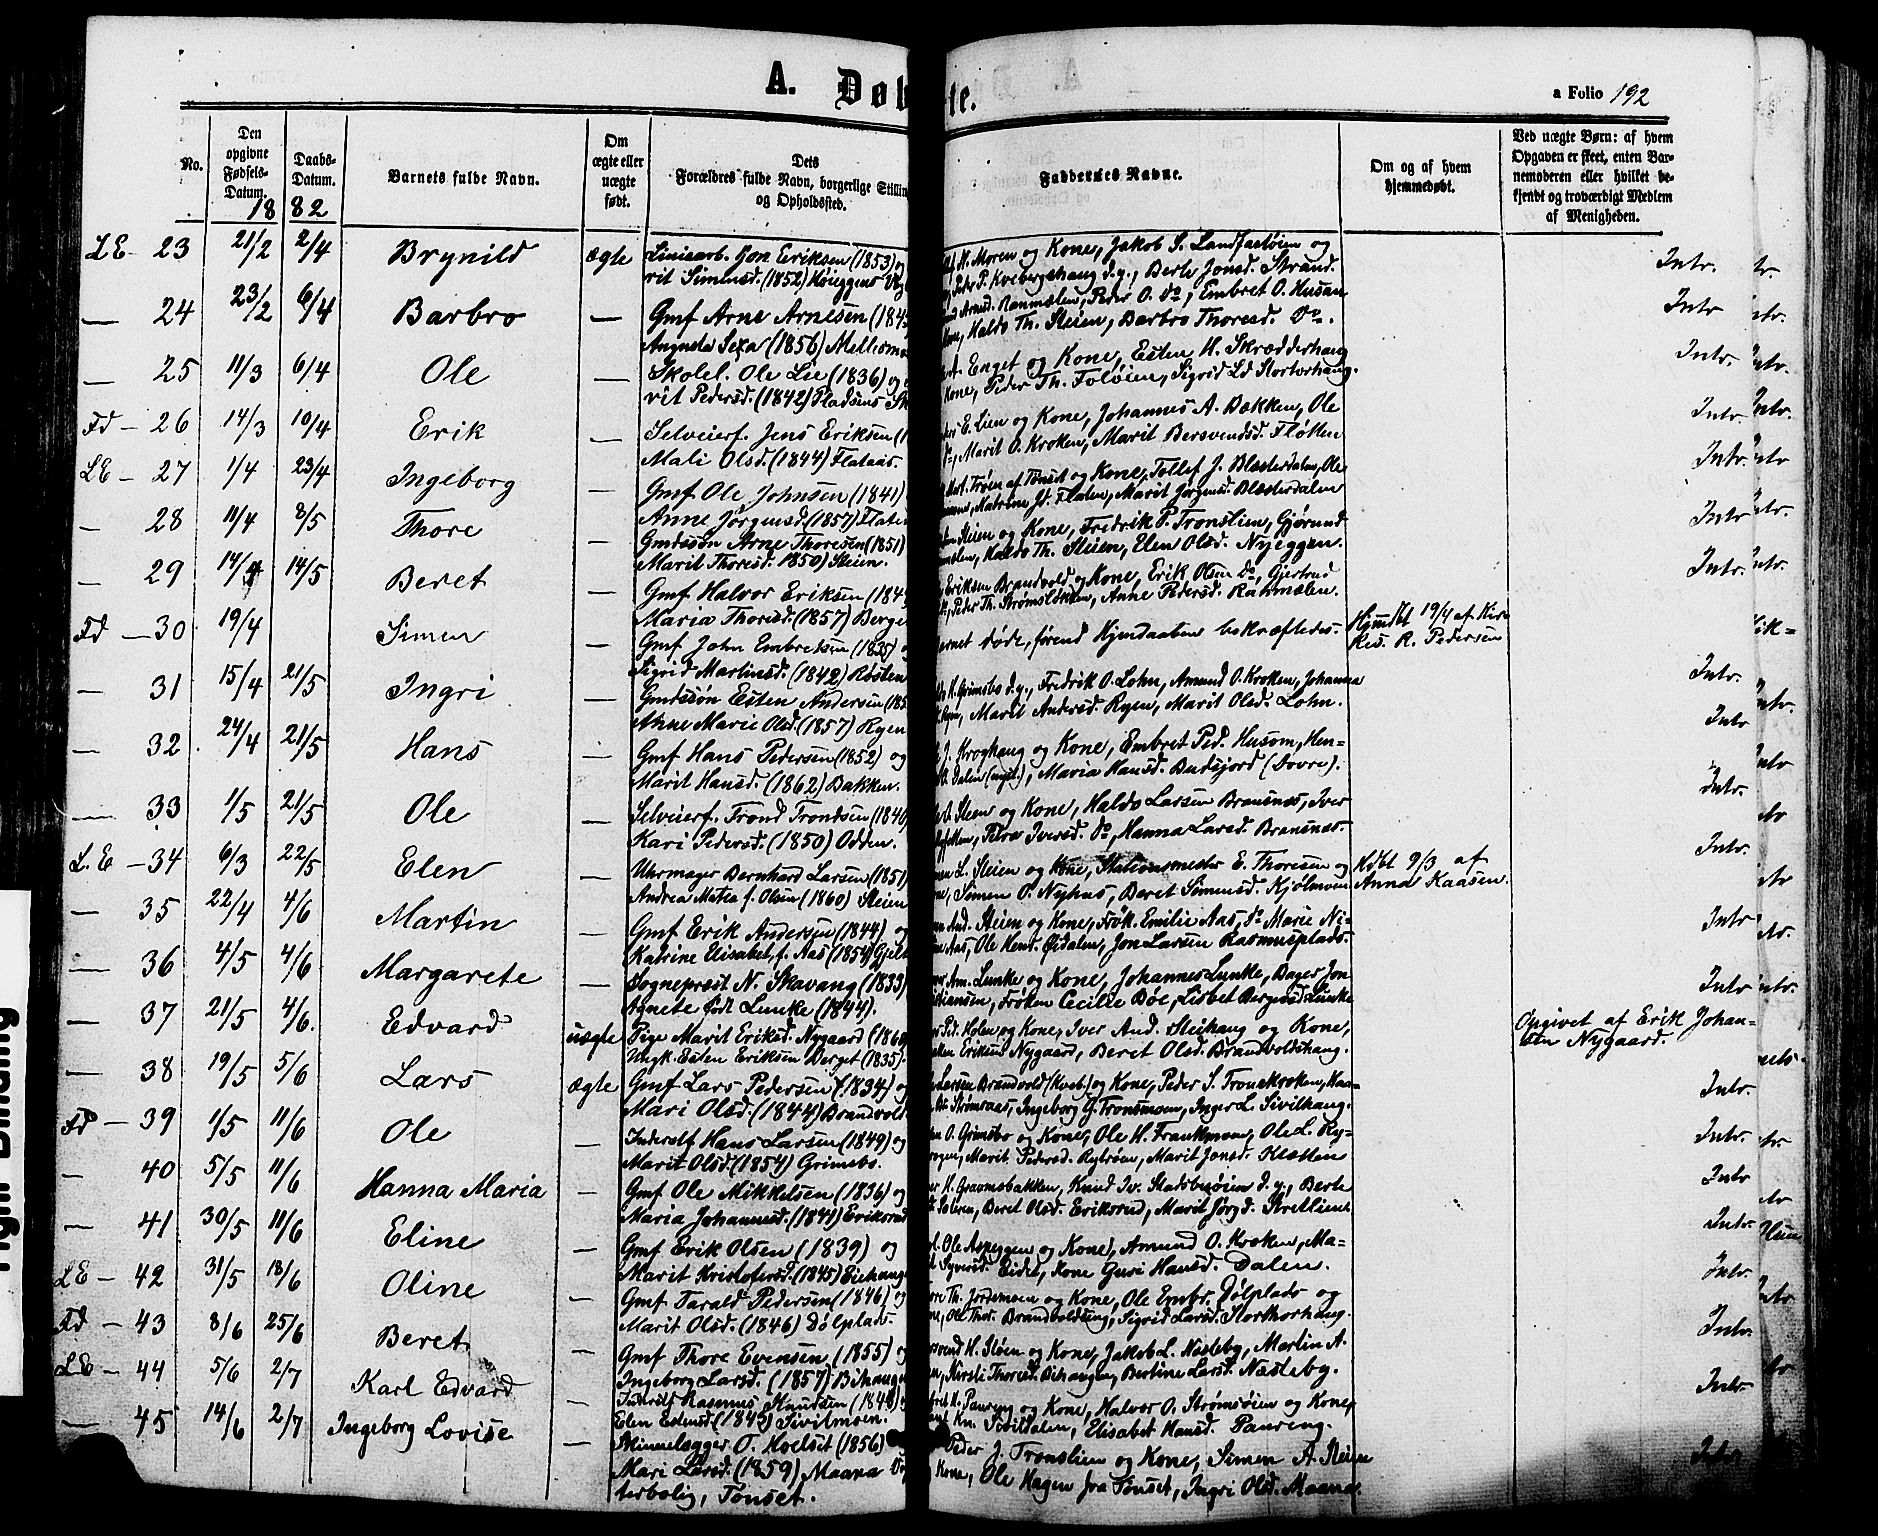 A. Døb
te.
a Folio 192
No.
Den opgivne Fødsels-Datum.
Daabs-Datum.
18 82
Barnets fulde Navn.
Om ægte eller uægte født.
Dets
Forældres fulde Navn, borgerlige Stillin
og Opholdssted.
Faddernes Navne.
Om og af hvem hjemmedøbt.
Ved uægte Børn: af hvem
Opgaven er skeet, enten Bar-
nemoderen eller hvilket be-
kjendt og troværdigt Medlem
af Menigheden.
LE - 23 21/2 2/4 Brynild ægte Liniearb. Jon Eriksen (1853) og
rit Simensd. (1852)
M. Moren og Kone, Jakob S. Landfastøien og
Peder P. Kvebergshaug d.y., Berte Jonsd. Strand.
Intr.
— 24 23/2 6/4 Barbro — Gmf Arne Arnesen (184
Angneta Sexa (1856) Mellesmo
Ranmælen, Peder O. Do, Embret O. Husan
Kone, Haldo Th. Steien, Barbro Thoresd. Do.
Intr
— 25 11/3 6/4 Ole — Skolel. Ole Lie (1836) og
rit Pedersd. (1842) Pladsens
Enget og Kone, Esten H. Skrædderhaug
Kone, Peder Th. Foløien, Sigrid Ld Stortorhaug.
Intr.
Fd - 26 14/3 10/4 Erik — Selveierf. Jens Eriksen (1
Mali Olsd. (1844) Flataas.
E. Lien og Kone, Johannes A. Bækken, Ole
Do, Marit O. Kroken, Marit Bersvendsd. Fløtten
Intr.
LE - 27 1/4 23/4 Ingeborg — Gmf Ole Johnsen (1841)
Anne Jørgensd. (1857) Flate
Trøen af Tønset og Kone, Tollef J. Blæsterdalen, Ole
Katrine Jd. Flaten, Marit Jørgensd. Blæsterdalen
Intr.
— 28 11/4 8/5 Thore — Gmdssøn Arne Thoresen (1851)
Marit Thoresd. 1850) Steien.
Steien og Kone, Fredrik P. Tronslien, Gjørund
Haldo Th. Steien, Elen Olsd. Nyeggen.
Intr
— 29 14/4 14/5 Beret — Gmf Halvor Eriksen (184
Maria Thoresd. (1857) Berge
Eriksen Brandvold og Kone, Erik Olsen Do, Gjertrud
Peder Th. Strømsløkken, Anne Pedersd. Ranmælen.
Intr.
Fd - 30 19/4 Simen — Gmf John Embretsen (1835) og
Sigrid Martinsd. (1842) Røsten
rnet døde, førend Hjmdaaben bekræftedes.
Hjmdbt 19/4 af
Res. R. Pedersen
— 31 15/4 21/5 Ingri — Gmdssøn Esten Andersen (185
Anne Marie Olsd. (1857) Ryen
Grimsbo d.y., Fredrik O. Lohn, Amund O. Kroken, Johanna
Ryen, Marit Andersd. Ryen, Marit Olsd. Lohn.
Intr.
— 32 24/4 21/5 Hans — Gmf Hans Pedersen (1852) og
Marit Hansd. (1862) Bakken.
J. Kroghaug og Kone, Embret Ped. Husom, Hen-
Dalen (ugift), Maria Hansd. Budsjord (Dovre).
Intr
— 33 1/5 21/5 Ole — Selveierf. Trond Trondsen (1840)
Kari Pedersd. (1850) Odden.
Steen og Kone, Haldo Larsen Bransnæs, Iver
Petra Iversd. Do, Hanna Larsd. Bransnæs.
Intr.
L.E - 34 6/3 22/5 Elen — Uhrmager Bernhard Larsen (1851)
Andrea Matea f. Olsen (1860) Steien
L. Steien og Kone, Stationsmester E. Thoresen og
Simen O. Nyhus, Beret Simensd. Kjølmoen
Hdbt 9/3 af
Anna Kaasen.
Intr.
— 35 22/4 4/6 Martin — Gmf Erik Andersen (1844) og
Katrine Elisabet, f. Aas (1854) Gjelt
And. Steien og Kone, Frøk. Emilie Aas, Do Marie Ni-
Aas, Ole Hens. Øidalen, Jon Larsen Rasmusplads.
Intr
— 36 4/5 4/6 Margarete — Sognepræst N. Skavang (1833)
Agnete født Lunke (1844).
Am. Lunke og Kone, Johannes Lunke, Bager Jon
Kristiansen, Frøken Cecilie Bøe, Lisbet Bergended Lunke
Intr
— 37 21/5 4/6. Edvard uægte Pige Marit Eriksd. Nygaard (1860
Ungk. Esten Eriksen Berget (1835).
Ped. Holen og Kone, Iver And. Steihaug og Kone,
Eriksen Nygaard, Beret Olsd. Brandvoldshaug.
Opgivet af Erik Johan-
sen Nygaard.
— 38 19/5 5/6 Lars ægte Gmf Lars Pedersen (1834) og
Mari Olsd. (1844) Brandvold
Larsen Brandvold (Kveb.) og Kone, Peder S. Tronskroken, Haa-
Strømsaas, Ingeborg G. Tronsmoen, Inger L. Sivilhaug.
Intr
Fd - 39 1/5 11/6 Ole — Inderstf Hans Larsen (1849) og
Marit Olsd. (1854) Grimsbo.
O. Grimsbo og Kone, Ole H. Frankmoen, Ole L. Ry-
Marit Pedersd. Rytrøen, Marit Jonsd. Kletten
Intr.
— 40 5/5 11/6 Hanna Maria — Gmf Ole Mikkelsen (1836) og
Maria Johannesd. (1841) Eriksrud
H. Gravmsbakken, Knud Iv. Stadsbuøien d.y., Berte
Beret Olsd. Eriksrud, Marit Jørgd. Stretlien
Intr
— 41 30/5 11/6 Eline — Gmf Erik Olsen (1839) og
Marit Kristofersd. (1845) Eiehauge
Ole Aspeggen og Kone, Amund O. Kroken, Ma-
Syversd. Eidet, Kone Guri Hansd. Dalen.
Intr.
LE - 42 31/5 18/6 Oline — Gmf Tarald Pedersen (1846) og
Marit Olsd. (1846) Dølplads.
Th. Jordemoen og Kone, Ole Embr. Dølplads og
Ole Thor. Brandvoldeng, Sigrid Larsd. Storthorhaug.
Intr.
Fd - 43 8/6 25/6 Beret — Gmf Thore Evensen (1855) og
Ingeborg Larsd. (1857) Bihaugen
H. Støen og Kone, Jakob L. Næsleby, Martin A.
Kirsti Thoresd. Bihaugen, Bertine Larsd. Næsleby.
Intr.
LE - 44 5/6 2/7 Karl Edvard — Inderstf Rasmus Knudsen (1848) og
Elen Estensd (1845) Sivilmoen.
H. Paureng og Kone, Halvor O. Strømsøien og Kone,
Kn. Sivildalen, Elisabet Hansd. Paureng.
Intr.
— 45 14/6 2/7 Ingeborg Lovise — Minnelægger O. Hvelset (1856)
Mari Larsd. (1859) Maana
terbolig, Tønset.
Peder J. Tronslien og Kone, Simen A. Steien
Kone, Ole Hagen fra Tønset, Ingri Olsd. Maana.
Intr.